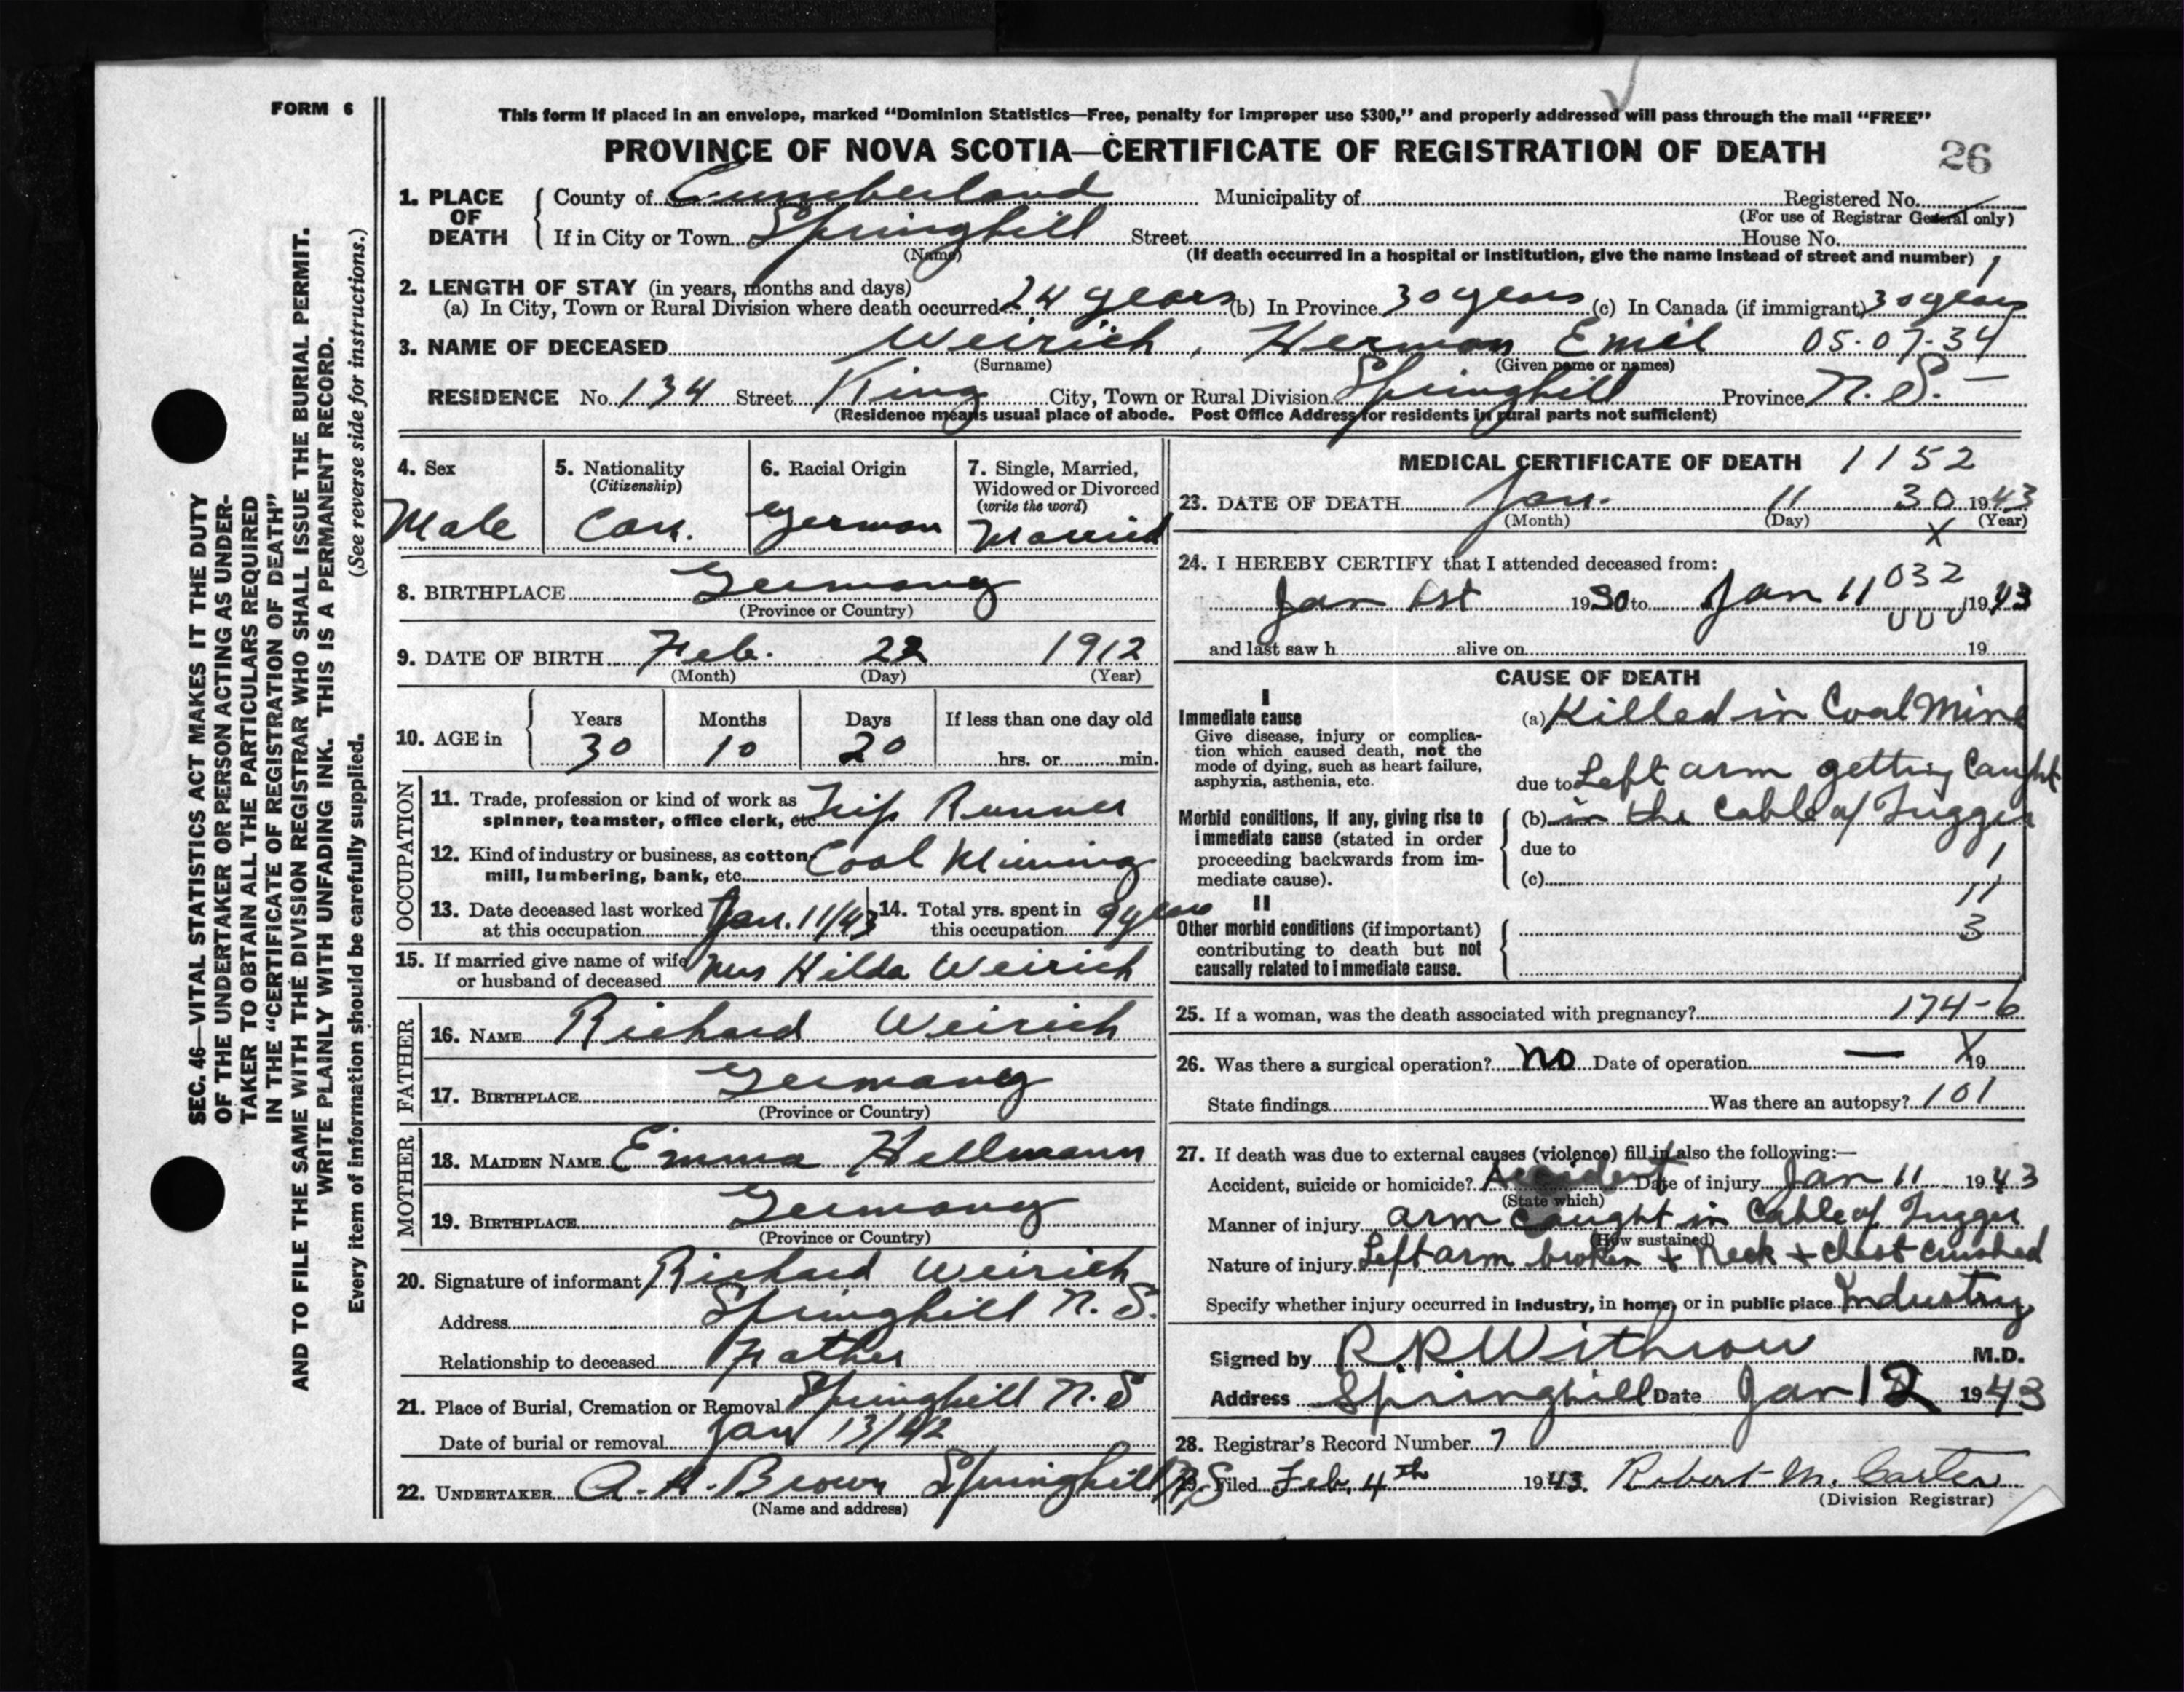 FORM 6
This form if placed in an envelope, marked “Dominion Statistics—Free, penalty for improper use $300,” and properly addressed will pass through the mail “FREE”
PROVINCE OF NOVA SCOTIA—CERTIFICATE OF REGISTRATION OF DEATH
26
1. PLACE OF DEATH
County of Cumberland Municipality of Registered No.
(For use of Registrar General only)
If in City or Town Springhill Street House No.
(Name) (If death occurred in a hospital or institution, give the name instead of street and number)
1
2. LENGTH OF STAY (in years, months and days)
(a) In City, Town or Rural Division where death occurred 24 years (b) In Province 30 years (c) In Canada (if immigrant) 30 years
3. NAME OF DECEASED Weirich, Herman Emil 05-07-34
(Surname) (Given name or names)
RESIDENCE No. 134 Street King City, Town or Rural Division Springhill Province N.S.
(Residence means usual place of abode. Post Office Address for residents in rural parts not sufficient)
4. Sex
Male
5. Nationality
(Citizenship)
Can.
6. Racial Origin
German
7. Single, Married,
Widowed or Divorced
(write the word)
Married
8. BIRTHPLACE Germany
(Province or Country)
9. DATE OF BIRTH Feb. 22 1912
(Month) (Day) (Year)
10. AGE in
Years Months Days If less than one day old
30 10 20 hrs. or min.
OCCUPATION
11. Trade, profession or kind of work as
spinner, teamster, office clerk, etc. Trip Runner
12. Kind of industry or business, as cotton
mill, lumbering, bank, etc. Coal Mining
13. Date deceased last worked
at this occupation Jan. 11/43
14. Total yrs. spent in
this occupation 9 years
15. If married give name of wife
or husband of deceased Mrs Hilda Weirich
FATHER
16. NAME Richard Weirich
17. BIRTHPLACE Germany
(Province or Country)
MOTHER
18. MAIDEN NAME Emma Hellmann
19. BIRTHPLACE Germany
(Province or Country)
20. Signature of informant Richard Weirich
Address Springhill N.S.
Relationship to deceased Father
21. Place of Burial, Cremation or Removal Springhill N.S
Date of burial or removal Jan 13/42
22. UNDERTAKER A. H. Brown Springhill N.S
(Name and address)
MEDICAL CERTIFICATE OF DEATH 1152
23. DATE OF DEATH Jan. 11 30 1943
(Month) (Day) (Year)
X
24. I HEREBY CERTIFY that I attended deceased from:
032
Jan 1st 1930 to Jan 11 1943
and last saw h alive on 19
CAUSE OF DEATH
I
Immediate cause
Give disease, injury or complica-
tion which caused death, not the
mode of dying, such as heart failure,
asphyxia, asthenia, etc.
(a) Killed in Coal Mine
due to Left arm getting Caught
Morbid conditions, if any, giving rise to
immediate cause (stated in order
proceeding backwards from im-
mediate cause).
(b) in the Cable of Tugger
due to
1
(c)
11
II
Other morbid conditions (if important)
contributing to death but not
causally related to immediate cause.
3
25. If a woman, was the death associated with pregnancy? 174-6
26. Was there a surgical operation? no Date of operation — X 19
State findings Was there an autopsy? 101
27. If death was due to external causes (violence) fill in also the following:—
Accident, suicide or homicide? Accident Date of injury Jan 11 1943
(State which)
Manner of injury arm caught in Cable of Tugger
(How sustained)
Nature of injury Left arm broken + Neck + chest crushed
Specify whether injury occurred in industry, in home, or in public place Industry
Signed by R.R Withrow M.D.
Address Springhill Date Jan 12 1943
28. Registrar's Record Number 7
29. Filed Feb. 4th 1943. Robert M. Carter
(Division Registrar)
SEC. 46—VITAL STATISTICS ACT MAKES IT THE DUTY
OF THE UNDERTAKER OR PERSON ACTING AS UNDER-
TAKER TO OBTAIN ALL THE PARTICULARS REQUIRED
IN THE “CERTIFICATE OF REGISTRATION OF DEATH”
AND TO FILE THE SAME WITH THE DIVISION REGISTRAR WHO SHALL ISSUE THE BURIAL PERMIT.
WRITE PLAINLY WITH UNFADING INK. THIS IS A PERMANENT RECORD.
Every item of information should be carefully supplied. (See reverse side for instructions.)